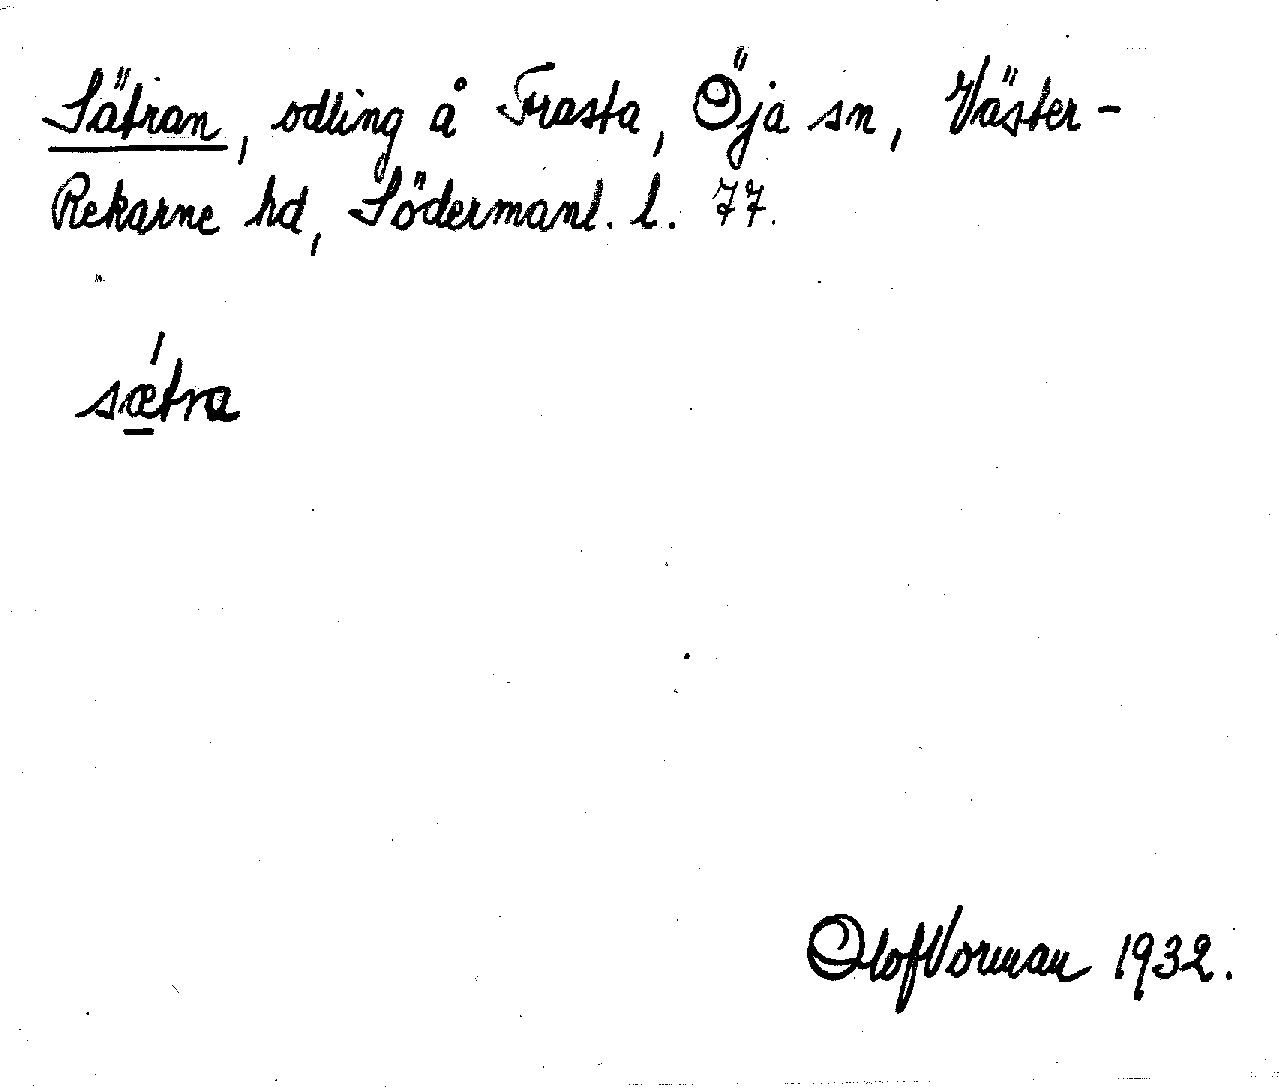 Sätran, odling å Frasta, Öja sn, Väster-
Rekarne hd, Södermanl. l. 77.
sætra
Olof Vorman 1932.